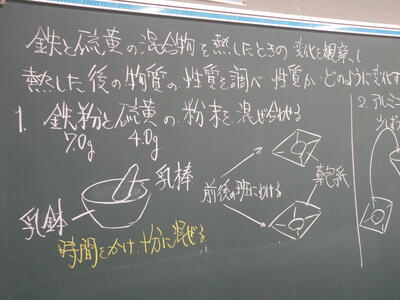 鉄と硫黄の混合物を熱したときの変化を観察し
熱した後の物質の性質を調べ、性質が、どのように変化す
1. 鉄粉と硫黄の粉末を混ぜ合わせる
7.0g 4.0g
乳棒
乳鉢
前後の班にわける
薬包紙
時間をかけ、十分に混ぜる
2. アルミニ